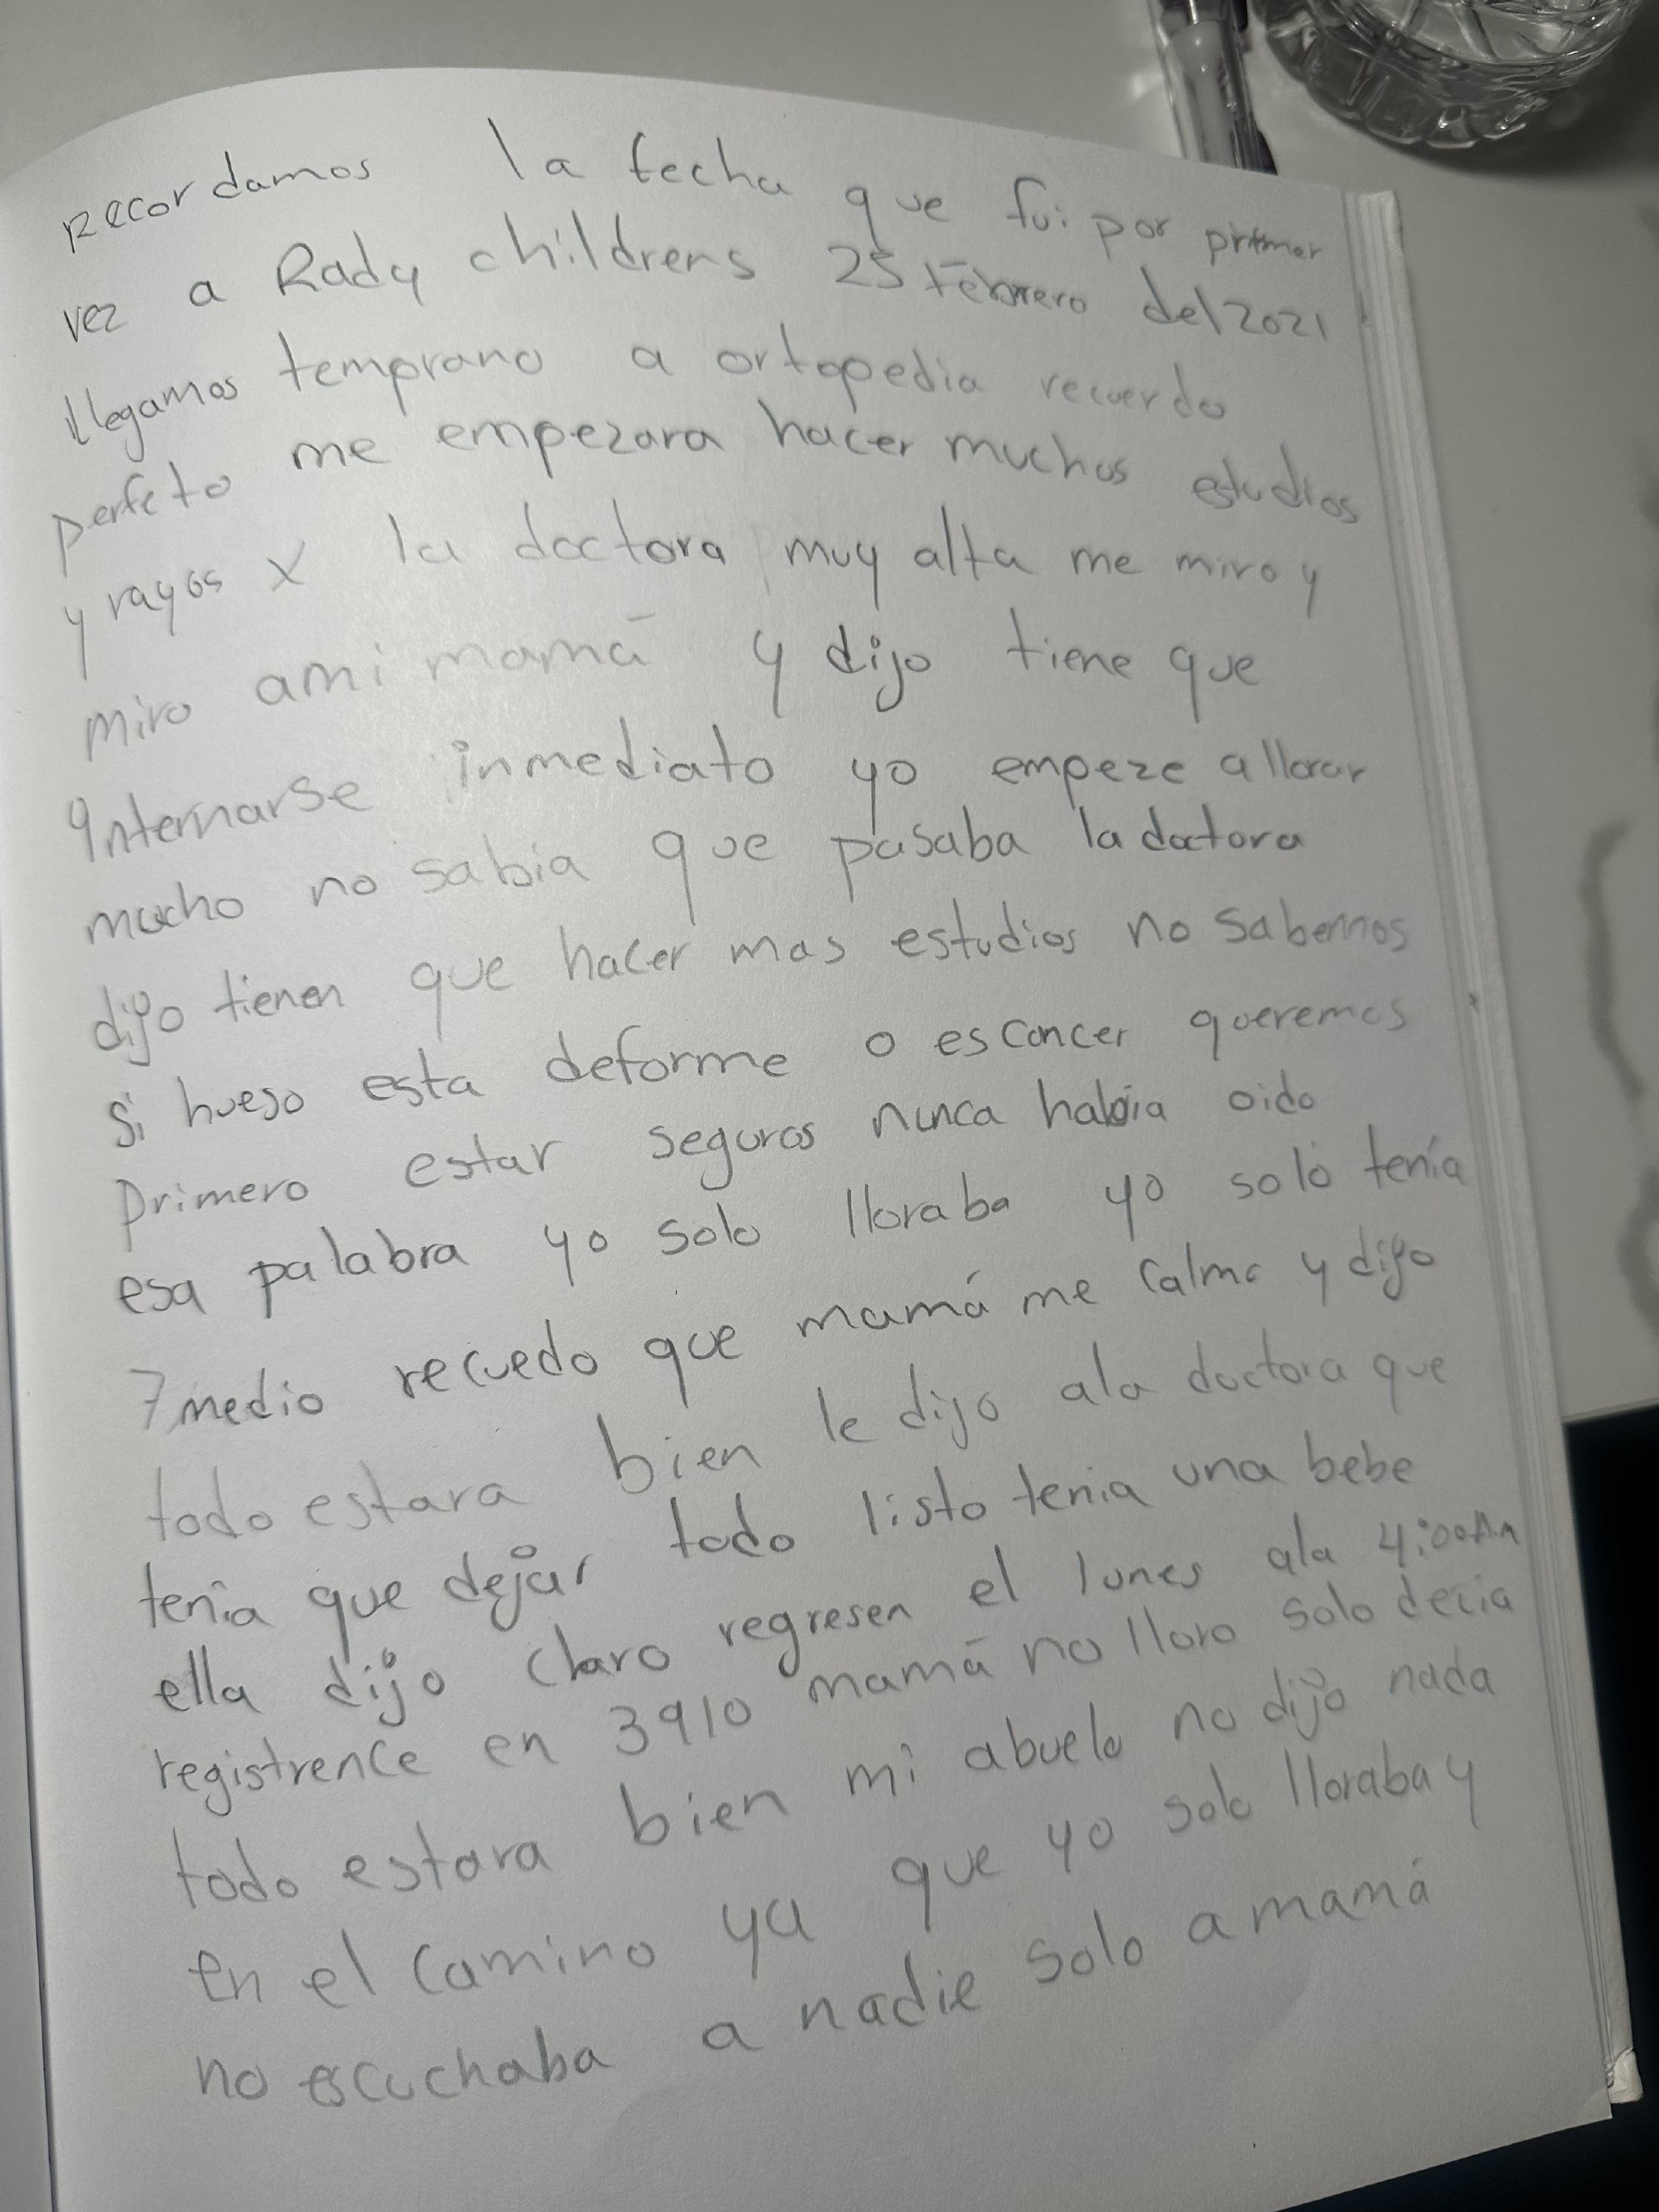 recordamos la fecha que fui por primer
vez a Rady childrens 25 Febrero del 2021
llegamos temprano a ortopedia recuerdo
perfeto me empezara hacer muchos estudios
y rayos X la doctora muy alta me miro y
miro ami mamá y dijo tiene que
internarse inmediato yo empeze allorar
mucho no sabia que pasaba la doctora
dijo tienen que hacer mas estudios no sabemos
si hueso esta deforme o es cancer queremos
primero estar seguros nunca habia oido
esa palabra yo solo lloraba yo solo tenía
7 medio recuedo que mamá me calmo y dijo
todo estara bien le dijo ala doctora que
tenia que dejar todo listo tenia una bebe
ella dijo claro regresen el lunes ala 4:00AM
registrence en 3910 mamá no lloro solo decia
todo estara bien mi abuelo no dijo nada
en el camino ya que yo solo lloraba y
no escuchaba a nadie solo a mamá